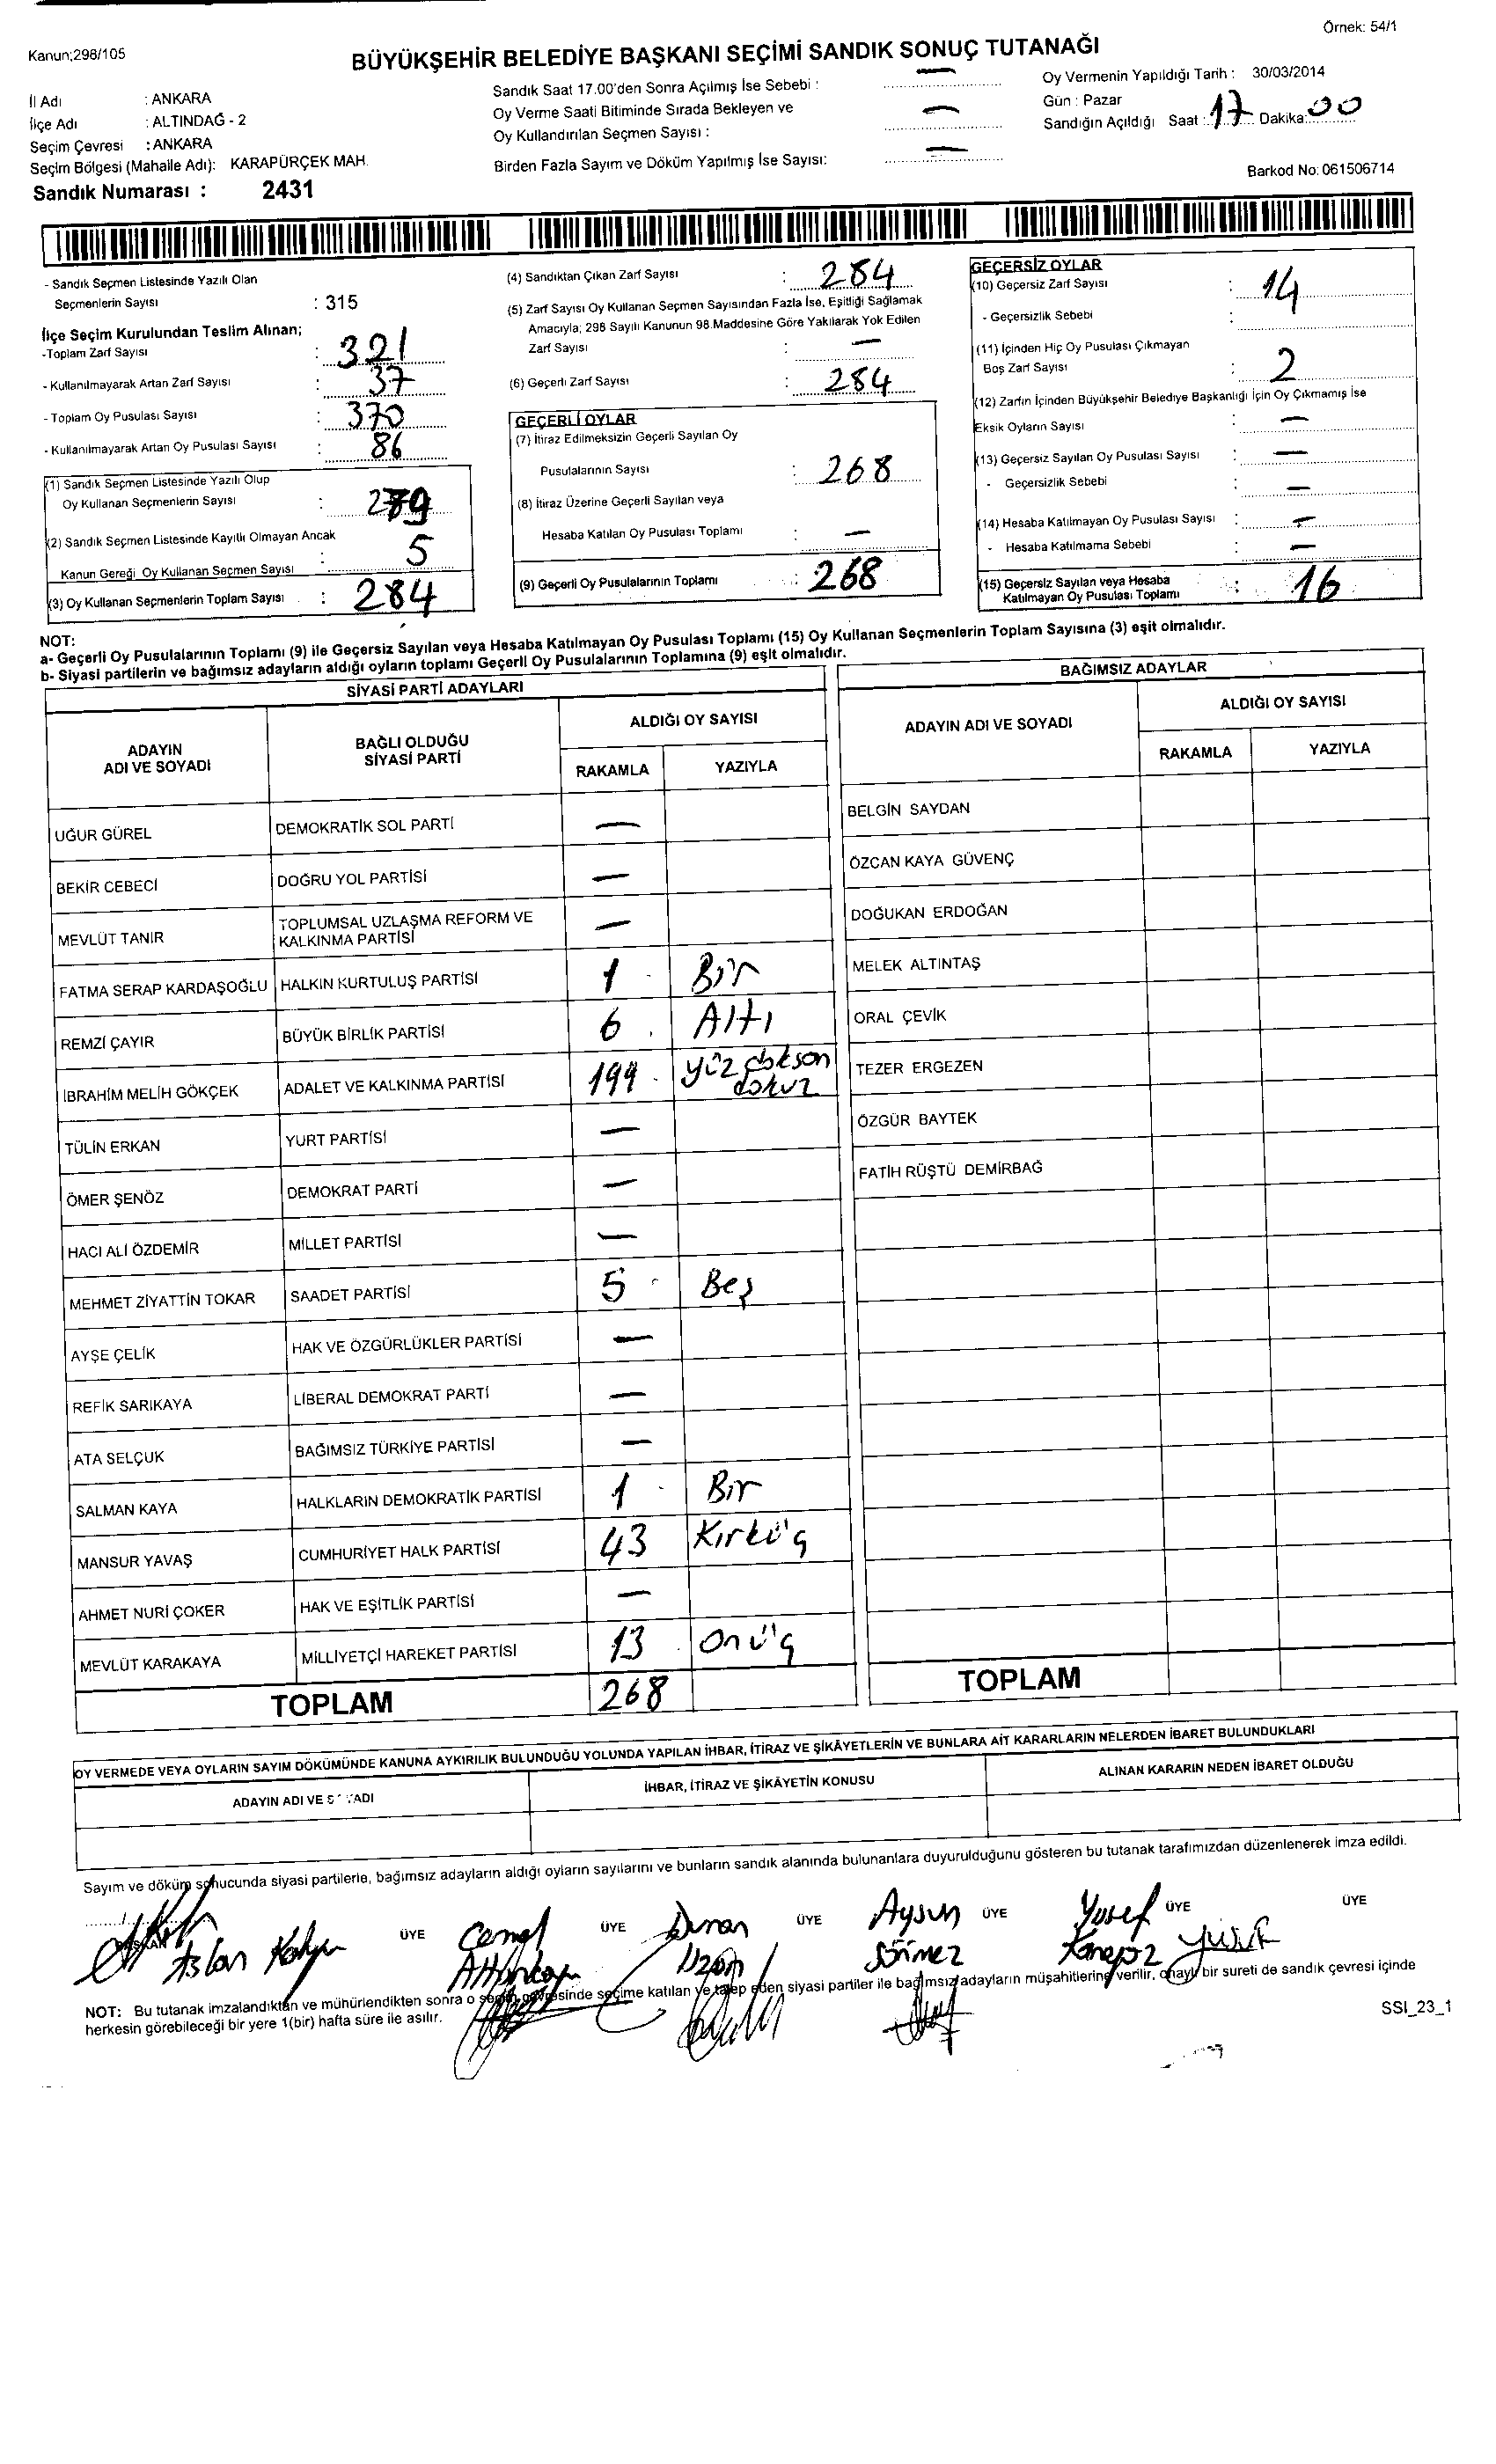 Örnek: 54/1
Kanun;298/105
BÜYÜKŞEHİR BELEDİYE BAŞKANI SEÇİMİ SANDIK SONUÇ TUTANAĞI
İl Adı : ANKARA
İlçe Adı : ALTINDAĞ - 2
Seçim Çevresi : ANKARA
Seçim Bölgesi (Mahalle Adı): KARAPÜRÇEK MAH.
Sandık Numarası : 2431
Sandık Saat 17.00'den Sonra Açılmış İse Sebebi : —
Oy Verme Saati Bitiminde Sırada Bekleyen ve
Oy Kullandırılan Seçmen Sayısı : —
Birden Fazla Sayım ve Döküm Yapılmış İse Sayısı: —
Oy Vermenin Yapıldığı Tarih : 30/03/2014
Gün : Pazar
Sandığın Açıldığı Saat : 17 Dakika: 00
Barkod No: 061506714
- Sandık Seçmen Listesinde Yazılı Olan
Seçmenlerin Sayısı : 315
İlçe Seçim Kurulundan Teslim Alınan;
-Toplam Zarf Sayısı : 321
- Kullanılmayarak Artan Zarf Sayısı : 37
- Toplam Oy Pusulası Sayısı : 370
- Kullanılmayarak Artan Oy Pusulası Sayısı : 86
(1) Sandık Seçmen Listesinde Yazılı Olup
Oy Kullanan Seçmenlerin Sayısı : 279
(2) Sandık Seçmen Listesinde Kayıtlı Olmayan Ancak
Kanun Gereği Oy Kullanan Seçmen Sayısı : 5
(3) Oy Kullanan Seçmenlerin Toplam Sayısı : 284
(4) Sandıktan Çıkan Zarf Sayısı : 284
(5) Zarf Sayısı Oy Kullanan Seçmen Sayısından Fazla İse, Eşitliği Sağlamak
Amacıyla; 298 Sayılı Kanunun 98.Maddesine Göre Yakılarak Yok Edilen
Zarf Sayısı : —
(6) Geçerli Zarf Sayısı : 284
GEÇERLİ OYLAR
(7) İtiraz Edilmeksizin Geçerli Sayılan Oy
Pusulalarının Sayısı : 268
(8) İtiraz Üzerine Geçerli Sayılan veya
Hesaba Katılan Oy Pusulası Toplamı : —
(9) Geçerli Oy Pusulalarının Toplamı : 268
GEÇERSİZ OYLAR
(10) Geçersiz Zarf Sayısı : 14
- Geçersizlik Sebebi :
(11) İçinden Hiç Oy Pusulası Çıkmayan
Boş Zarf Sayısı : 2
(12) Zarfın İçinden Büyükşehir Belediye Başkanlığı İçin Oy Çıkmamış İse
Eksik Oyların Sayısı : —
(13) Geçersiz Sayılan Oy Pusulası Sayısı : —
- Geçersizlik Sebebi : —
(14) Hesaba Katılmayan Oy Pusulası Sayısı : —
- Hesaba Katılmama Sebebi : —
(15) Geçersiz Sayılan veya Hesaba
Katılmayan Oy Pusulası Toplamı : 16
NOT:
a- Geçerli Oy Pusulalarının Toplamı (9) ile Geçersiz Sayılan veya Hesaba Katılmayan Oy Pusulası Toplamı (15) Oy Kullanan Seçmenlerin Toplam Sayısına (3) eşit olmalıdır.
b- Siyasi partilerin ve bağımsız adayların aldığı oyların toplamı Geçerli Oy Pusulalarının Toplamına (9) eşit olmalıdır.
SİYASİ PARTİ ADAYLARI
ADAYIN ADI VE SOYADI BAĞLI OLDUĞU SİYASİ PARTİ ALDIĞI OY SAYISI
RAKAMLA YAZIYLA
UĞUR GÜREL DEMOKRATİK SOL PARTİ —
BEKİR CEBECİ DOĞRU YOL PARTİSİ —
MEVLÜT TANIR TOPLUMSAL UZLAŞMA REFORM VE KALKINMA PARTİSİ —
FATMA SERAP KARDAŞOĞLU HALKIN KURTULUŞ PARTİSİ 1 Bir
REMZİ ÇAYIR BÜYÜK BİRLİK PARTİSİ 6 Altı
İBRAHİM MELİH GÖKÇEK ADALET VE KALKINMA PARTİSİ 199 yüz doksan dokuz
TÜLİN ERKAN YURT PARTİSİ —
ÖMER ŞENÖZ DEMOKRAT PARTİ —
HACI ALİ ÖZDEMİR MİLLET PARTİSİ —
MEHMET ZİYATTİN TOKAR SAADET PARTİSİ 5 Beş
AYŞE ÇELİK HAK VE ÖZGÜRLÜKLER PARTİSİ —
REFİK SARIKAYA LİBERAL DEMOKRAT PARTİ —
ATA SELÇUK BAĞIMSIZ TÜRKİYE PARTİSİ —
SALMAN KAYA HALKLARIN DEMOKRATİK PARTİSİ 1 Bir
MANSUR YAVAŞ CUMHURİYET HALK PARTİSİ 43 Kırküç
AHMET NURİ ÇOKER HAK VE EŞİTLİK PARTİSİ —
MEVLÜT KARAKAYA MİLLİYETÇİ HAREKET PARTİSİ 13 Onüç
TOPLAM 268
BAĞIMSIZ ADAYLAR
ADAYIN ADI VE SOYADI ALDIĞI OY SAYISI
RAKAMLA YAZIYLA
BELGİN SAYDAN
ÖZCAN KAYA GÜVENÇ
DOĞUKAN ERDOĞAN
MELEK ALTINTAŞ
ORAL ÇEVİK
TEZER ERGEZEN
ÖZGÜR BAYTEK
FATİH RÜŞTÜ DEMİRBAĞ
TOPLAM
OY VERMEDE VEYA OYLARIN SAYIM DÖKÜMÜNDE KANUNA AYKIRILIK BULUNDUĞU YOLUNDA YAPILAN İHBAR, İTİRAZ VE ŞİKÂYETLERİN VE BUNLARA AİT KARARLARIN NELERDEN İBARET BULUNDUKLARI
ADAYIN ADI VE SOYADI İHBAR, İTİRAZ VE ŞİKÂYETİN KONUSU ALINAN KARARIN NEDEN İBARET OLDUĞU
Sayım ve döküm sonucunda siyasi partilerle, bağımsız adayların aldığı oyların sayılarını ve bunların sandık alanında bulunanlara duyurulduğunu gösteren bu tutanak tarafımızdan düzenlenerek imza edildi.
BAŞKAN ÜYE ÜYE ÜYE ÜYE ÜYE ÜYE
Aslan Cemal Duran Aysun Yusuf
Uzun Sönmez
NOT: Bu tutanak imzalandıktan ve mühürlendikten sonra o seçim çevresinde seçime katılan ve talep eden siyasi partiler ile bağımsız adayların müşahitlerine verilir, onaylı bir sureti de sandık çevresi içinde
herkesin görebileceği bir yere 1(bir) hafta süre ile asılır.
SSI_23_1